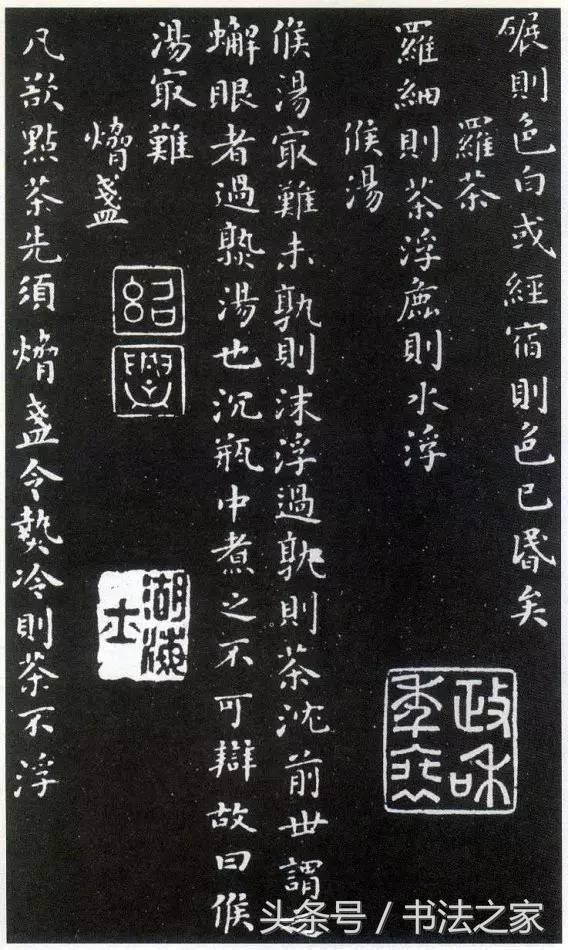 碾則色白或經宿則色已昬矣
羅茶
羅細則茶浮麁則水浮
候湯
候湯冣難未孰則沫浮過孰則茶沈前丗謂之
蠏眼者過熟湯也沉瓶中煮之不可辯故曰候
湯冣難
熁盞
凡欲點茶先須熁盞令熱冷則茶不浮
政和
紹興
湖海
士
头条号 / 书法之家